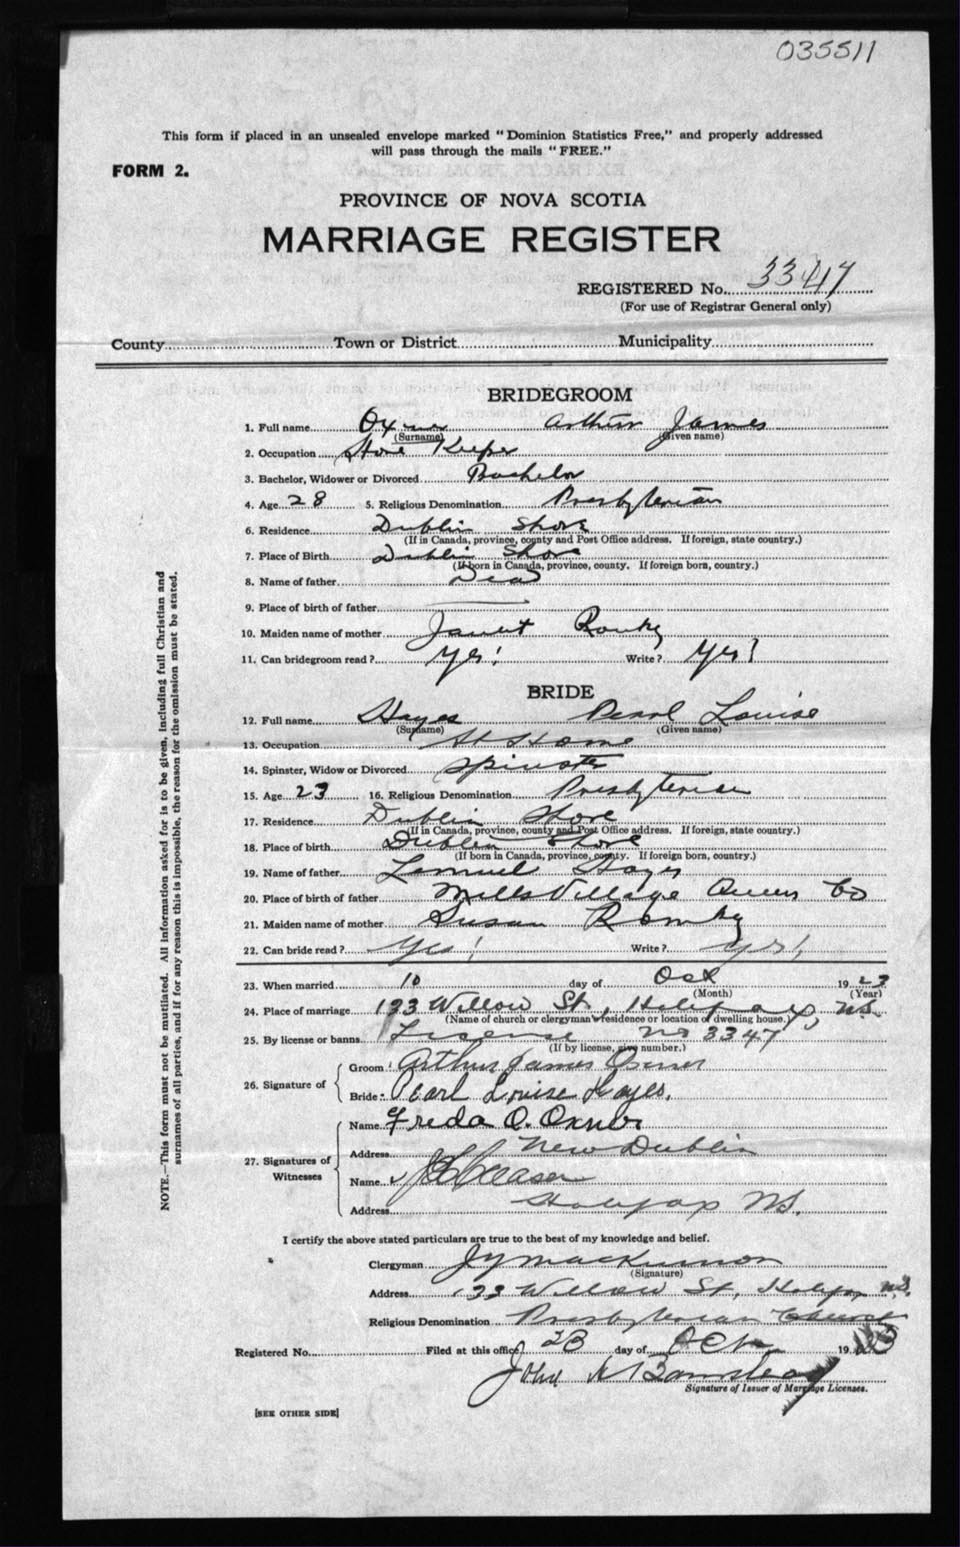 035511
This form if placed in an unsealed envelope marked "Dominion Statistics Free," and properly addressed
will pass through the mails "FREE."
FORM 2.
PROVINCE OF NOVA SCOTIA
MARRIAGE REGISTER
REGISTERED No. 3347
(For use of Registrar General only)
County Town or District Municipality
BRIDEGROOM
1. Full name Oxner Arthur James
(Surname) (Given name)
2. Occupation Store Keeper
3. Bachelor, Widower or Divorced Bachelor
4. Age 28 5. Religious Denomination Presbyterian
6. Residence Dublin Shore
(If in Canada, province, county and Post Office address. If foreign, state country.)
7. Place of Birth Dublin Shore
(If born in Canada, province, county. If foreign born, country.)
8. Name of father Dead
9. Place of birth of father
10. Maiden name of mother Janet
11. Can bridegroom read? Yes! Write? Yes!
BRIDE
12. Full name Hayes Pearl Louise
(Surname) (Given name)
13. Occupation At Home
14. Spinster, Widow or Divorced Spinster
15. Age 23 16. Religious Denomination Presbyterian
17. Residence Dublin Shore
(If in Canada, province, county and Post Office address. If foreign, state country.)
18. Place of birth Dublin Shore
(If born in Canada, province, county. If foreign born, country.)
19. Name of father Lemuel Hayes
20. Place of birth of father Mills Village Queens Co
21. Maiden name of mother Susan
22. Can bride read? Yes! Write? Yes!
23. When married 10 day of Oct 1923
(Month) (Year)
24. Place of marriage 133 Willow St, Halifax, N.S.
(Name of church or clergyman's residence or location of dwelling house.)
25. By license or banns License No 3347
(If by license, give number.)
26. Signature of
Groom: Arthur James Oxner
Bride: Pearl Louise Hayes.
27. Signatures of Witnesses
Name Freda O. Oxner
Address New Dublin
Name
Address Halifax NS.
I certify the above stated particulars are true to the best of my knowledge and belief.
Clergyman J y MacKinnon
(Signature)
Address 133 Willow St, Halifax N.S.
Religious Denomination Presbyterian Church
Registered No. Filed at this office 23 day of Oct 1923
John
Signature of Issuer of Marriage Licenses.
[SEE OTHER SIDE]
NOTE.—This form must not be mutilated. All information asked for is to be given, including full Christian and
surnames of all parties, and if for any reason this is impossible, the reason for the omission must be stated.